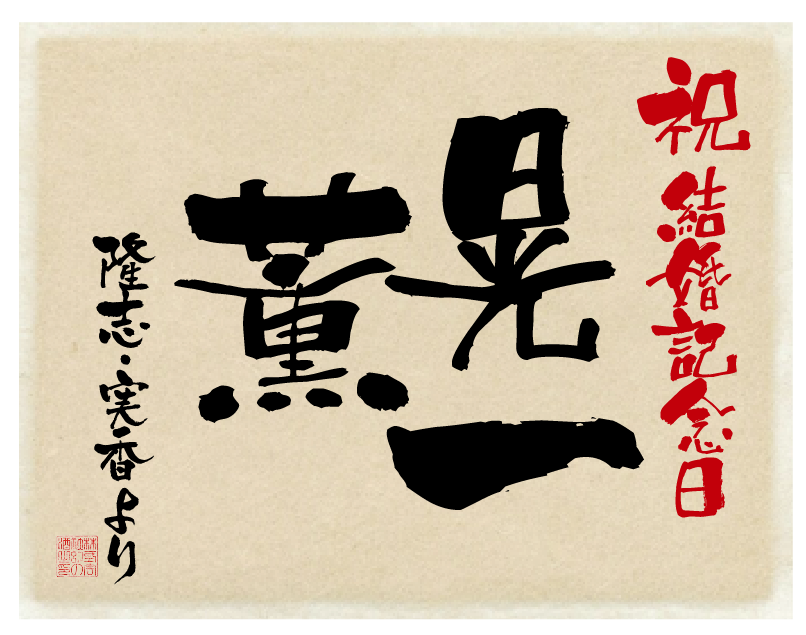 祝結婚記念日
晃一
薫
隆志・実香より